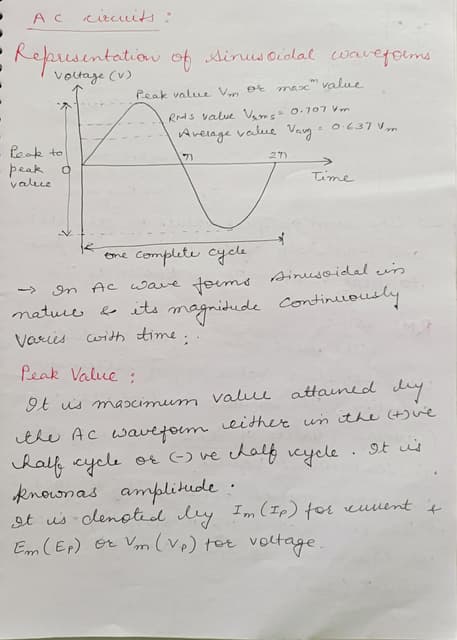 AC circuits :
Representation of sinusoidal waveforms
Voltage (v)
Peak value Vm or maxᵐ value
RMS value Vrms = 0.707 Vm
Average value Vavg = 0.637 Vm
Peak to
peak
value
0
π
2π
Time
one complete cycle
→ In AC wave forms sinusoidal in
nature & its magnitude continuously
varies with time;.
Peak Value :
It is maximum value attained by
the AC waveform either in the (+)ve
half cycle or (-)ve half cycle. It is
known as amplitude.
It is denoted by Im(Ip) for current &
Em(Ep) or Vm(Vp) for voltage.